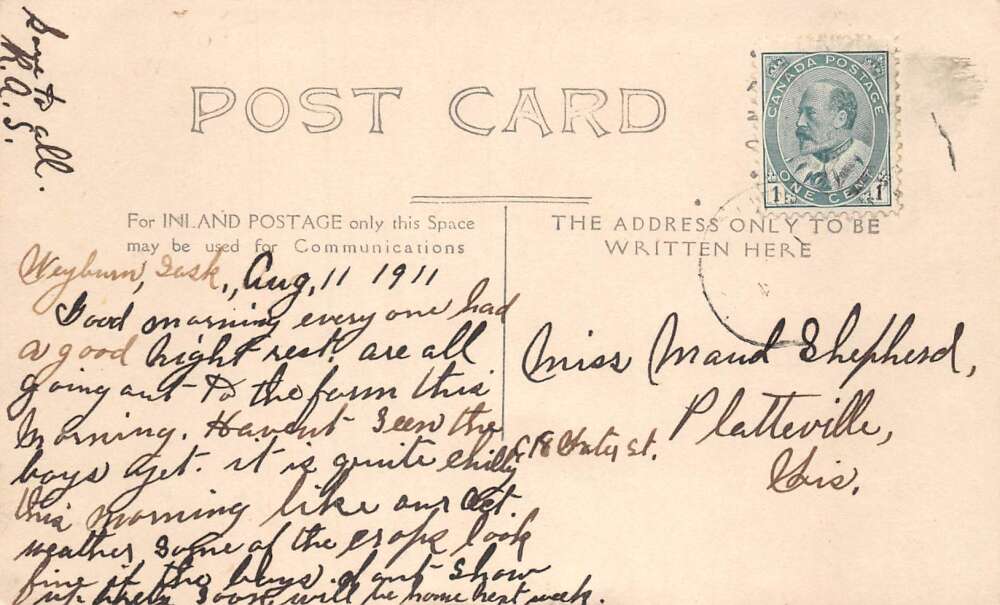 Love to all.
R.A.S.
POST CARD
CANADA POSTAGE
1 ONE CENT 1
For INLAND POSTAGE only this Space
may be used for Communications
THE ADDRESS ONLY TO BE
WRITTEN HERE
Weyburn, Sask., Aug, 11 1911
Good morning every one had
a good night rest. are all
going out to the farm this
morning. Havent seen the
boys yet. it is quite chilly
this morning like our Oct.
weather some of the crops look
fine if the boys dont show
up soon will be home next week.
Miss Maud Shepherd,
Platteville,
St.
Wis.